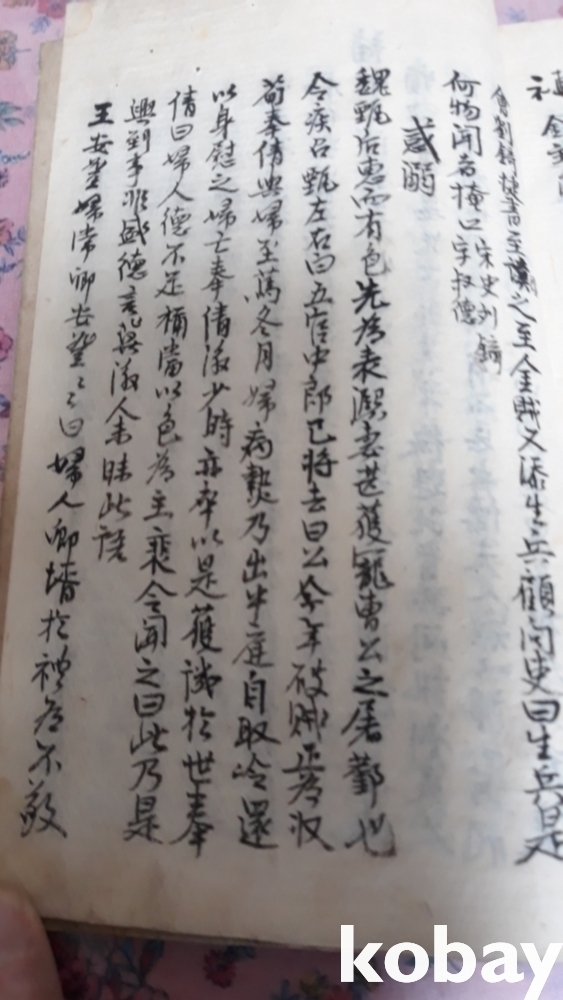 會劉錡捷書至讀之至金賊又添生兵顧問吏曰生兵是
何物聞者掩口 宋史列 字叔德
惑溺
魏甄后惠而有色先為袁熙妻甚獲寵曹公之屠鄴也
令疾召甄左右白五官中郎已將去曰公今年破賊正為奴
荀奉倩與婦至篤冬月婦病熱乃出中庭自取冷還
以身慰之婦亡奉倩後少時亦卒以是獲譏於世奉
倩曰婦人德不足稱當以色為主裴令聞之曰此乃是
興到事非盛德言冀後人未昧此語
王安豐婦常卿安豐〻〻曰婦人卿壻於禮為不敬
kobay